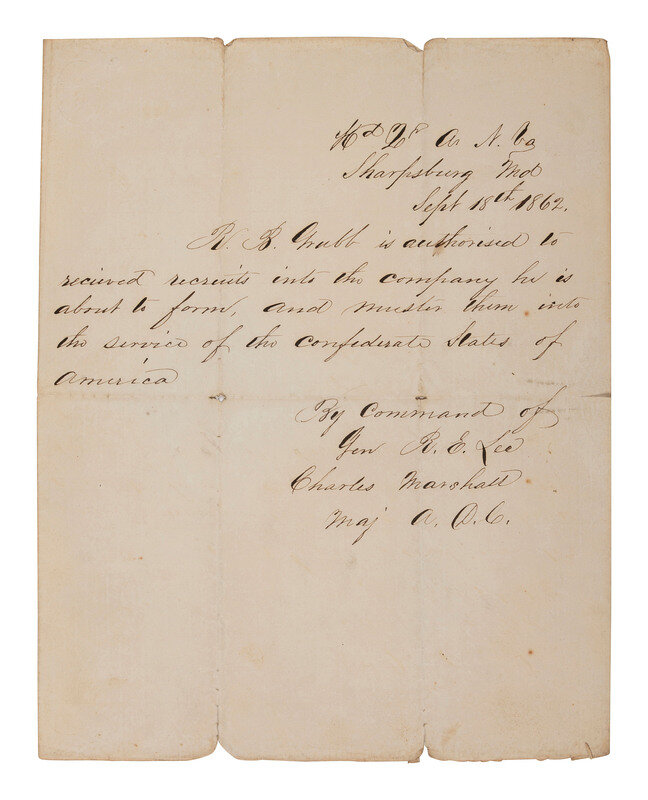 Hd Qr Ar N. Va
Sharpsburg Md
Sept 18th 1862.
R. B. Grubb is authorised to
recieved recruits into the company he is
about to form, and muster them into
the service of the confederate States of
America
By command of
Gen R. E. Lee
Charles Marshall
Maj A. D. C.